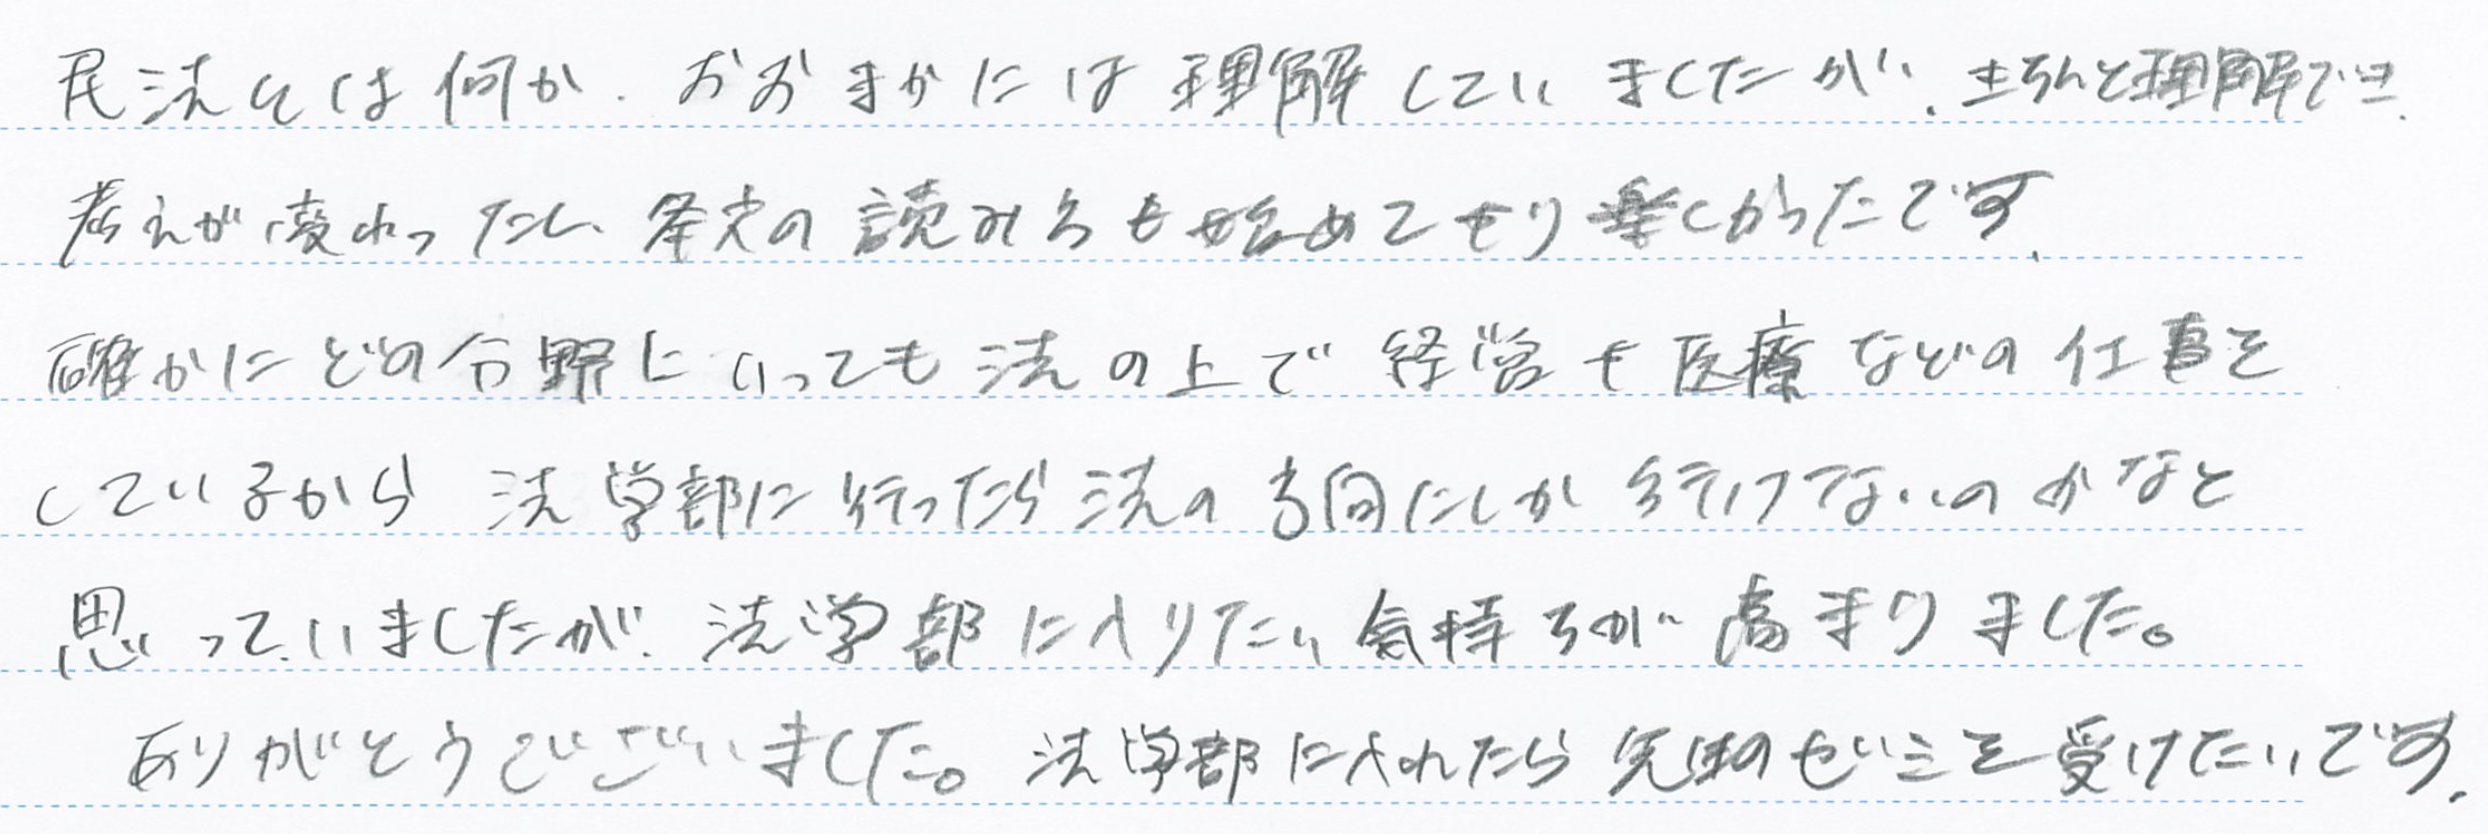 民法とは何か、おおまかには理解していましたが、きちんと理解でき、
考えが変わったし、条文の読みろも始めてせり楽しかったです、
確かにどの分野にいっても法の上で経営や医療などの仕事を
しているから 法学部に行ったら法の方向にしか行けないのかなと
思っていましたが、法学部に入りたい気持ちが高まりました。
ありがとうでございました。法学部に入れたら先生のゼミを受けたいです、